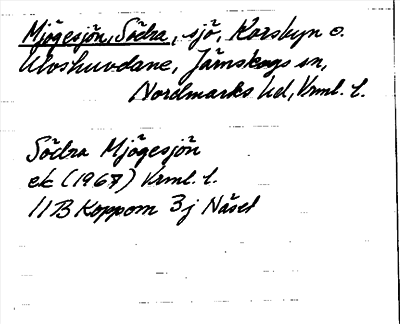 Mjögesjön, Södra, sjö, Korsbyn o.
Ulvshuvdane, Järnskogs sn,
Nordmarks hd, Vrml. l.
Södra Mjögesjön
ek (1967) Vrml. l.
11B Koppom 3j Näset